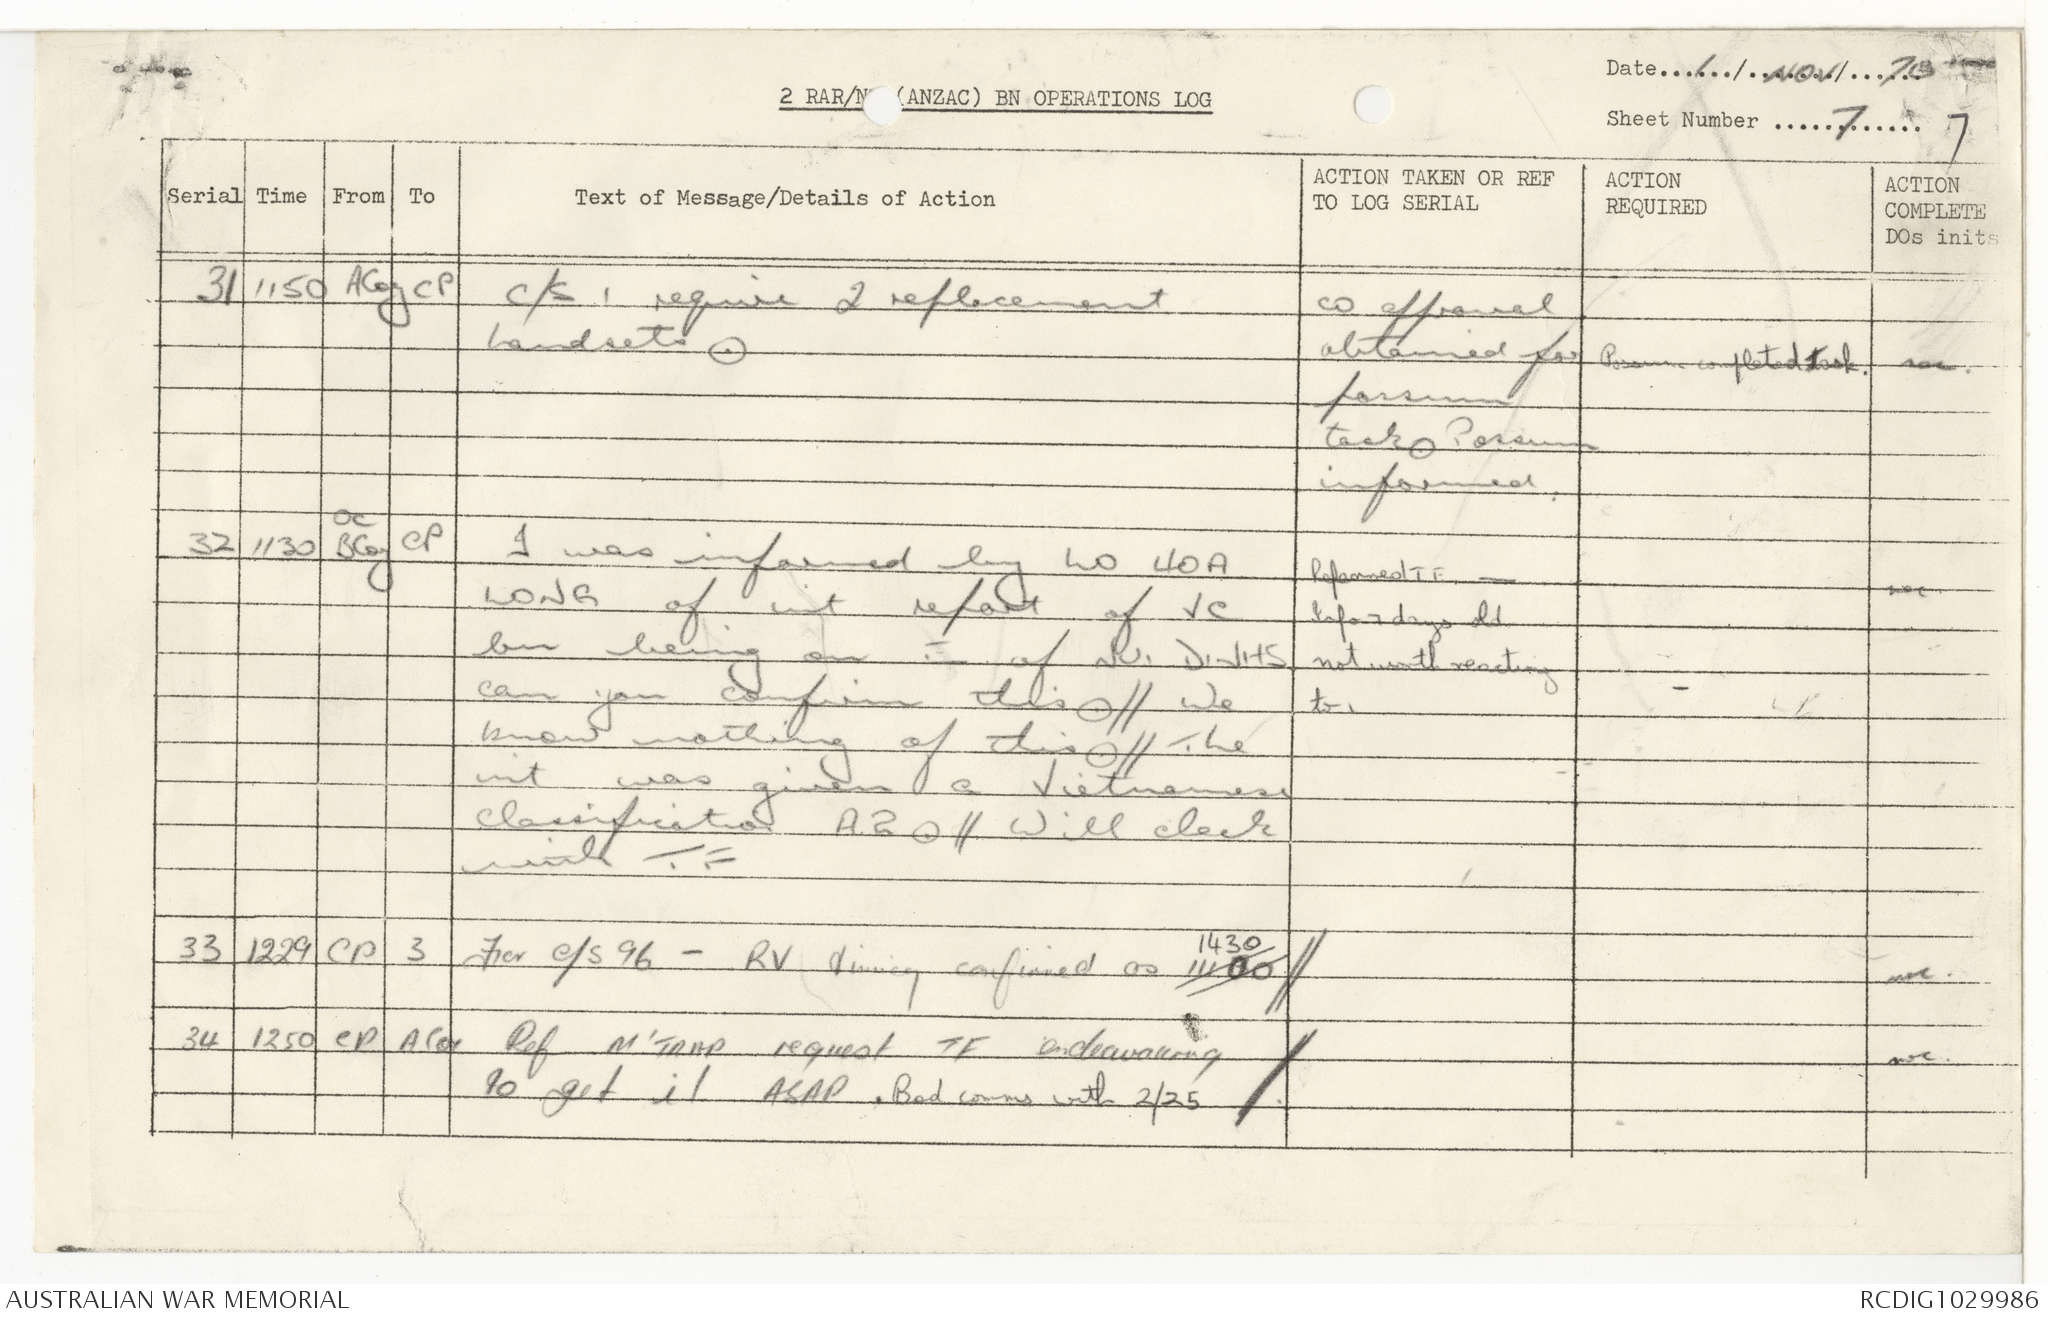 Date 1/NOV/70
2 RAR/N (ANZAC) BN OPERATIONS LOG
Sheet Number 7 7
Serial Time From To Text of Message/Details of Action ACTION TAKEN OR REF TO LOG SERIAL ACTION REQUIRED ACTION COMPLETE DOs inits
31 1150 ACoy CP C/S 1 require 2 replacement
handsets.
CO approval
obtained for
possum
task. Possum
informed.
Possum completed task.
32 1130 OC BCoy CP I was informed by LO 40A
LONG of int report of VC
bn being on of NUI DINHS
can you confirm this.// We
know nothing of this.// The
int was given a Vietnamese
classification A2.// Will check
with TF
Informed TF. —
Info 7 days old
not worth reacting
to.
-
33 1229 CP 3 For C/S 96 - RV timing confirmed as 1430 //
34 1250 CP ACoy Ref M'TRAP request TF endeavouring
to get it ASAP. Bad comms with 2/25 /
AUSTRALIAN WAR MEMORIAL
RCDIG1029986